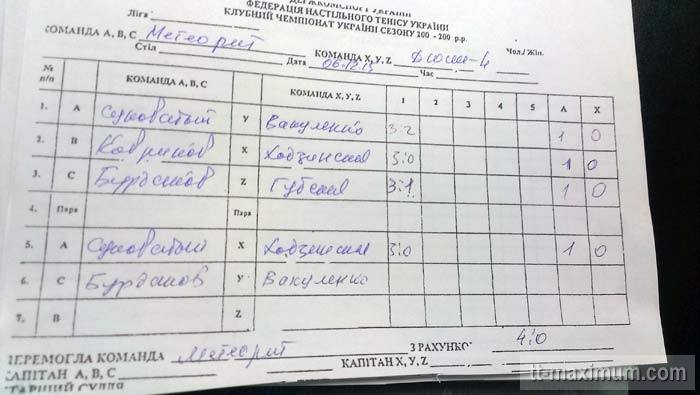 ФЕДЕРАЦІЯ НАСТІЛЬНОГО ТЕНІСУ УКРАЇНИ
КЛУБНИЙ ЧЕМПІОНАТ УКРАЇНИ СЕЗОНУ 200 - 200 р.р.
Ліга
КОМАНДА А, В, С Метеорит КОМАНДА X, Y, Z Дюсш-4 Чол./Жін.
Стіл Дата 06.12.15 Час
№ п/п КОМАНДА А, В, С КОМАНДА X, У, Z 1 2 3 4 5 А X
1. А Суховатый У Вакуленко 3:2 1 0
2. В Ковриков X 3:0 1 0
3. С Бурдаков Z 3:1 1 0
4. Пара Пара
5. А Суховатый X 3:0 1 0
6. С Бурдаков У Вакуленко
7. В Z
ПЕРЕМОГЛА КОМАНДА Метеорит З РАХУНКО 4:0
КАПІТАН А, В, С КАПІТАН X, У, Z
tt-maximum.com